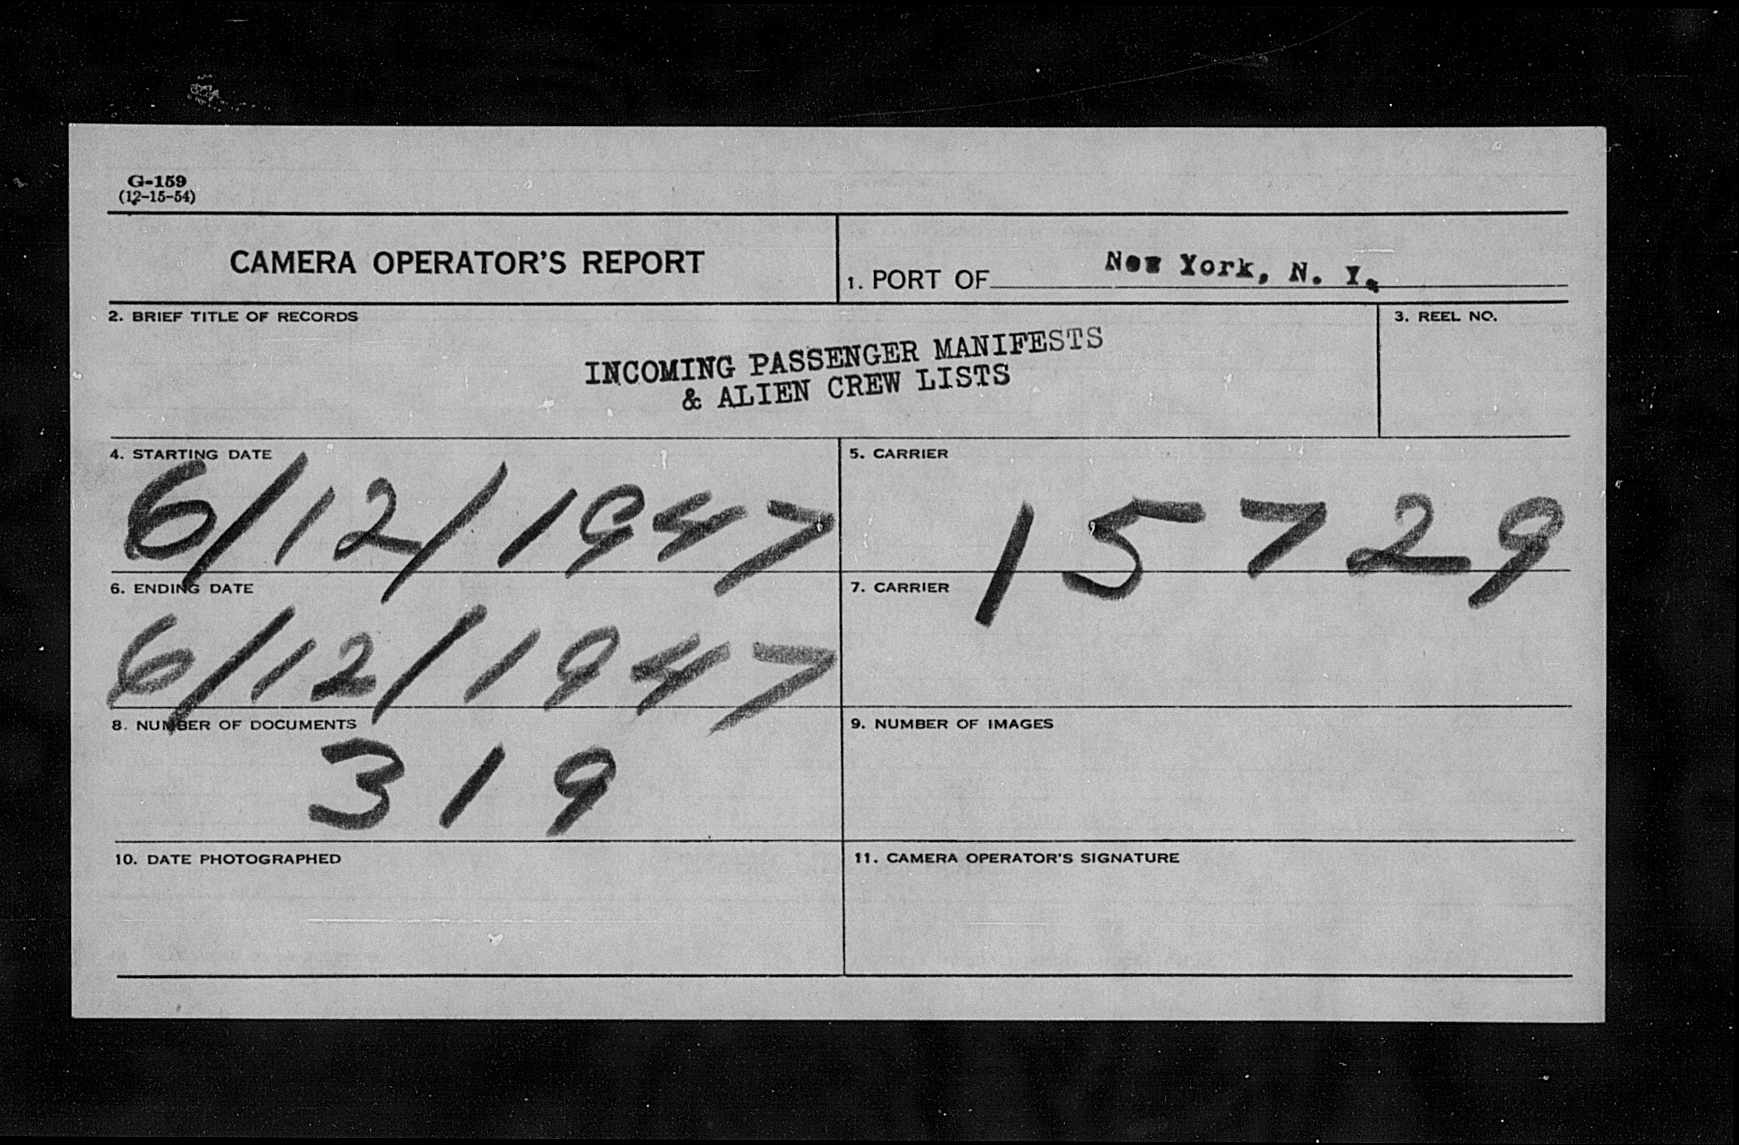 G-159
(12-15-54)
CAMERA OPERATOR'S REPORT
1. PORT OF New York, N. Y.
2. BRIEF TITLE OF RECORDS
3. REEL NO.
INCOMING PASSENGER MANIFESTS
& ALIEN CREW LISTS
4. STARTING DATE
5. CARRIER
6/12/1947
15729
6. ENDING DATE
7. CARRIER
6/12/1947
8. NUMBER OF DOCUMENTS
9. NUMBER OF IMAGES
319
10. DATE PHOTOGRAPHED
11. CAMERA OPERATOR'S SIGNATURE